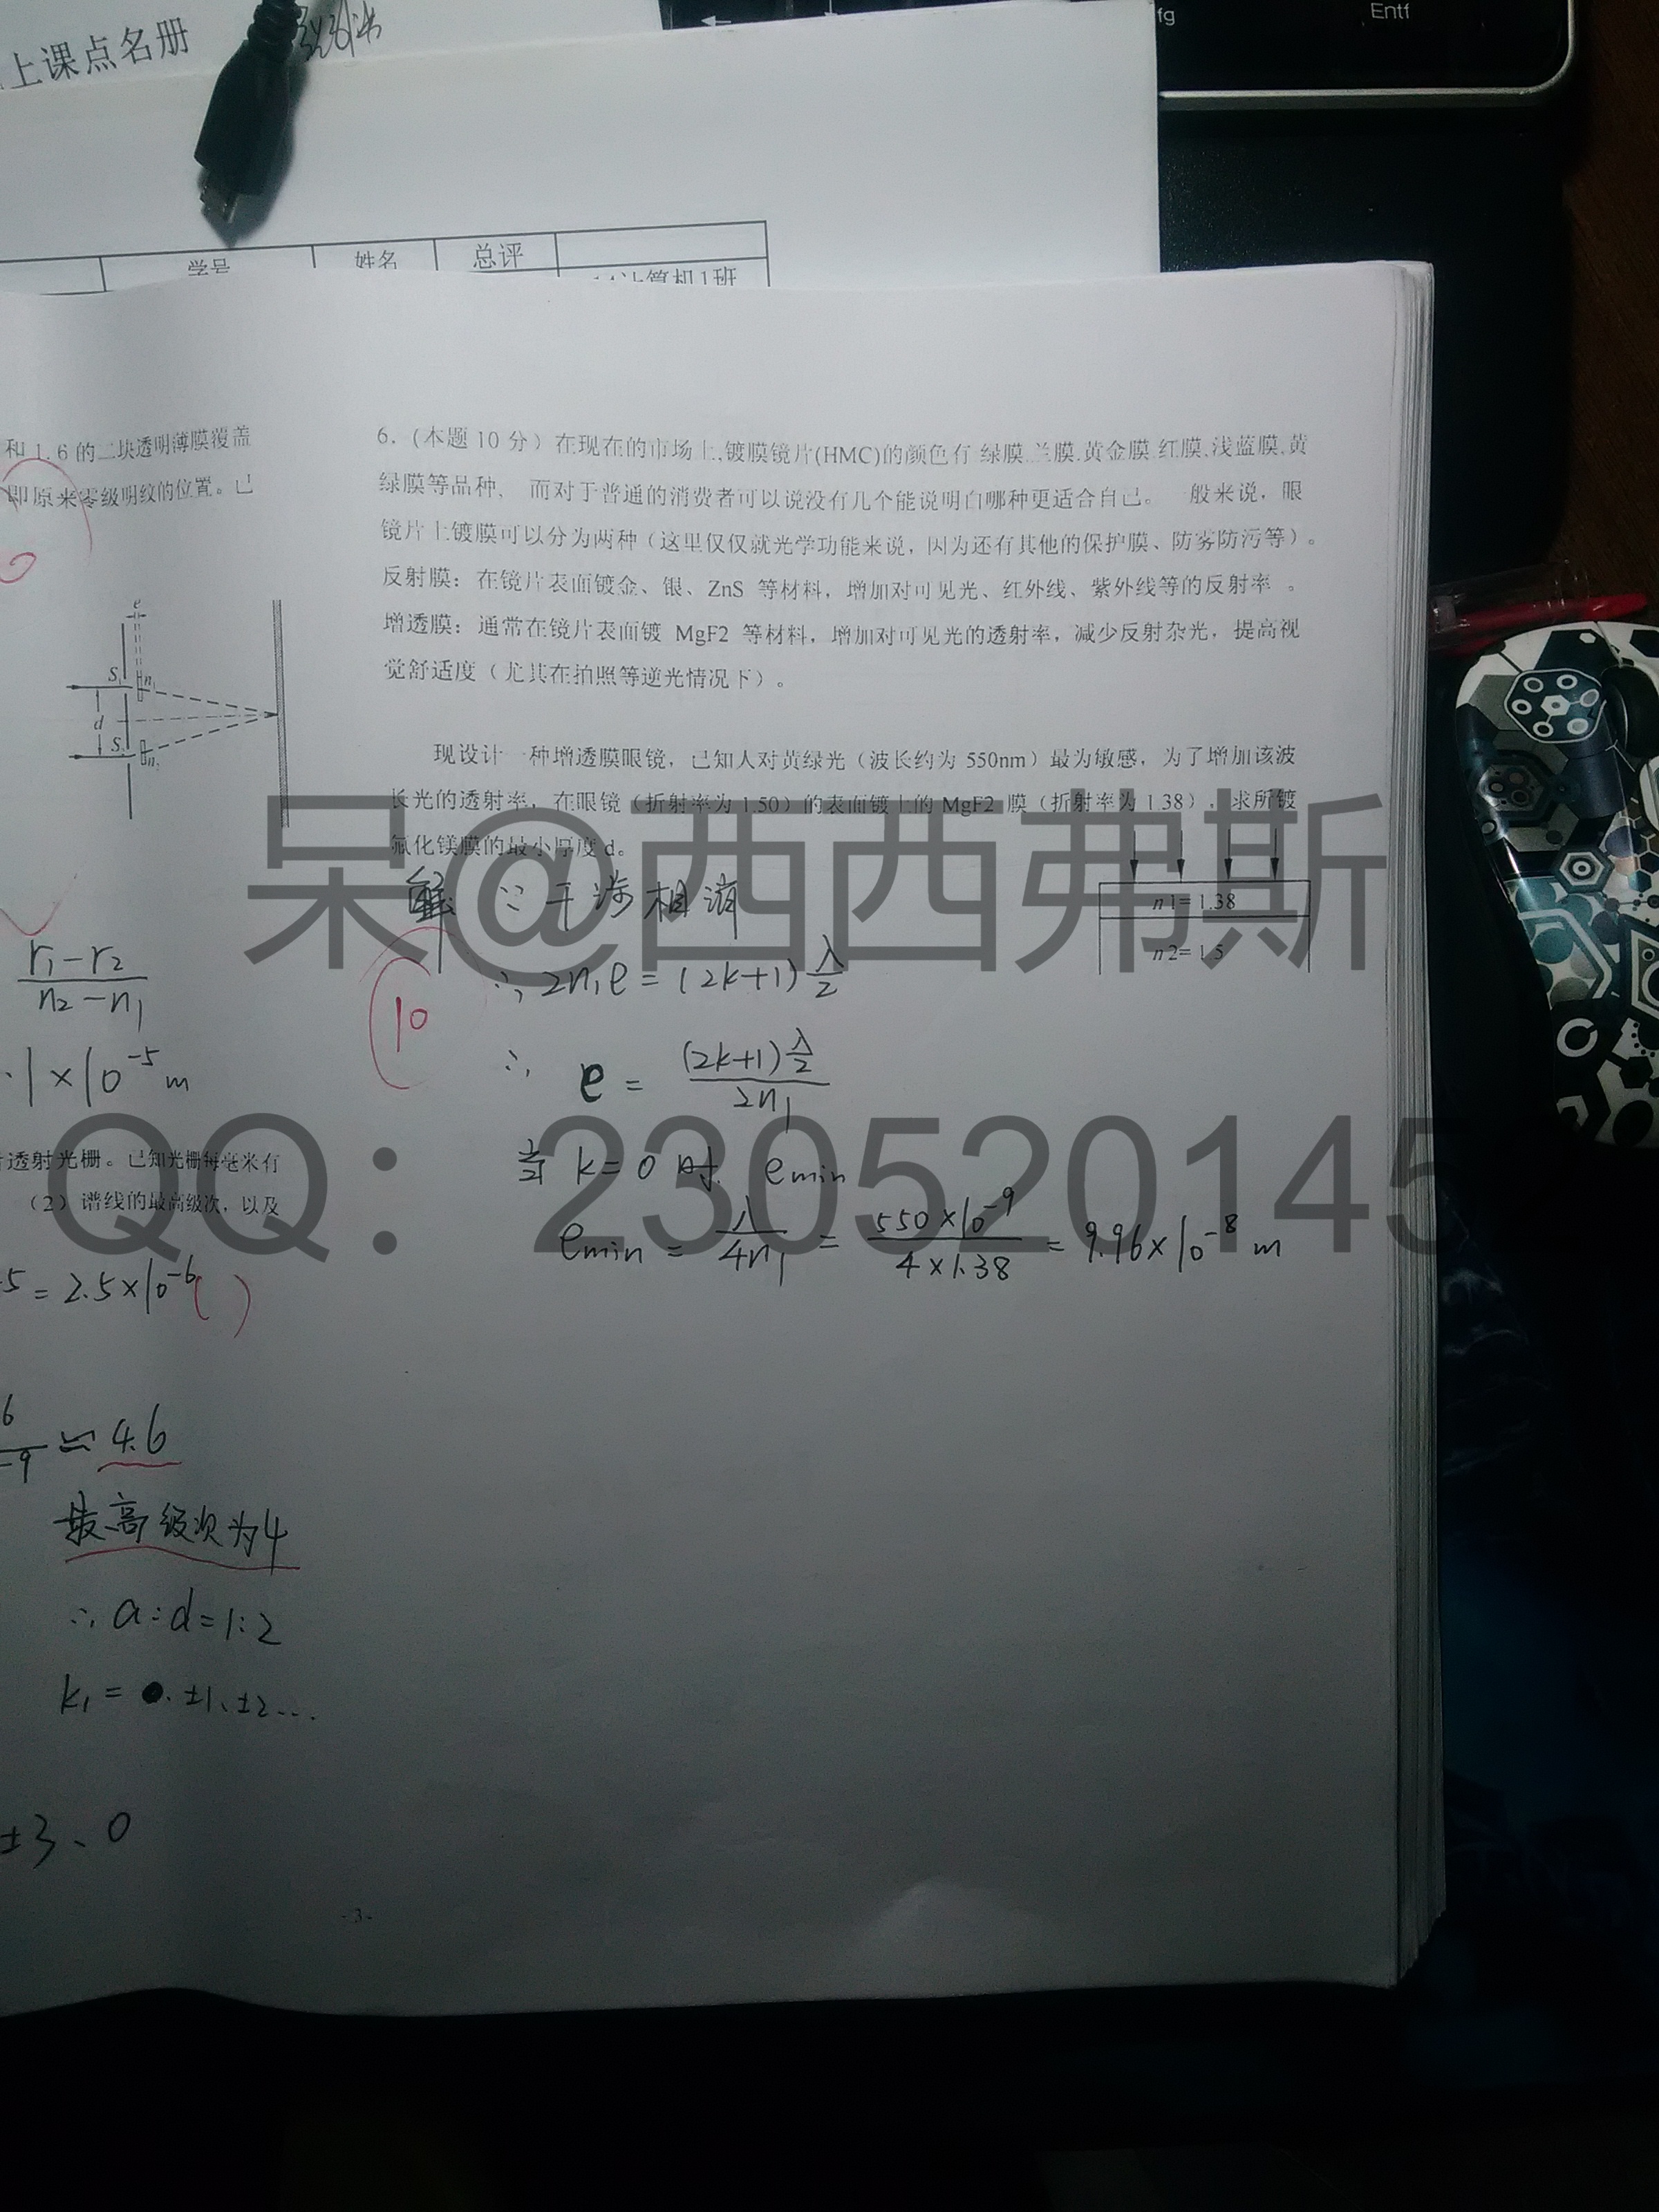 上课点名册
fg
Entf
学号 姓名 总评
计算机1班
和1.6的二块透明薄膜覆盖
即原来零级明纹的位置。已
e
S1
n1
d
S2
n2
r1-r2
n2-n1
1×10-5 m
透射光栅。已知光栅每毫米有
(2)谱线的最高级次，以及
-5 = 2.5×10-6
6
-9
≈ 4.6
最高级次为4
∴ a:d=1:2
±1、±2...
±3、0
6.(本题10分)在现在的市场上,镀膜镜片(HMC)的颜色有 绿膜.兰膜.黄金膜.红膜.浅蓝膜.黄
绿膜等品种、而对于普通的消费者可以说没有几个能说明白哪种更适合自己。一般来说，眼
镜片上镀膜可以分为两种（这里仅仅就光学功能来说，因为还有其他的保护膜、防雾防污等）。
反射膜：在镜片表面镀金、银、ZnS 等材料，增加对可见光、红外线、紫外线等的反射率 。
增透膜：通常在镜片表面镀 MgF2 等材料，增加对可见光的透射率，减少反射杂光，提高视
觉舒适度（尤其在拍照等逆光情况下）。
现设计一种增透膜眼镜，已知人对黄绿光（波长约为 550nm）最为敏感，为了增加该波
长光的透射率，在眼镜（折射率为 1.50）的表面镀上的 MgF2 膜（折射率为 1.38），求所镀
氟化镁膜的最小厚度 d。
n1= 1.38
n2= 1.5
呆@西西弗斯
解 ∵干涉相消
∴ 2n1e = (2k+1) λ/2
10
∴ e = (2k+1) λ/2 / 2n1
当 k=0 时. emin
QQ：230520145
emin = λ/4n1 = 550×10-9 / 4×1.38 = 9.96×10-8 m
-3-